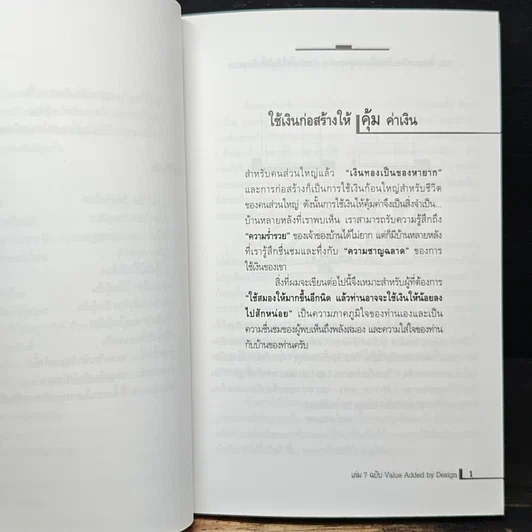 ใช้เงินก่อสร้างให้ คุ้ม ค่าเงิน
สำหรับคนส่วนใหญ่แล้ว "เงินทองเป็นของหายาก"
และการก่อสร้างก็เป็นการใช้เงินก้อนใหญ่สำหรับชีวิต
ของคนส่วนใหญ่ ดังนั้นการใช้เงินให้คุ้มค่าจึงเป็นสิ่งจำเป็น...
บ้านหลายหลังที่เราพบเห็น เราสามารถรับความรู้สึกถึง
"ความร่ำรวย" ของเจ้าของบ้านได้ไม่ยาก แต่ก็มีบ้านหลายหลัง
ที่เรารู้สึกชื่นชมและทึ่งกับ "ความชาญฉลาด" ของการ
ใช้เงินของเขา
สิ่งที่ผมจะเขียนต่อไปนี้จึงเหมาะสำหรับผู้ที่ต้องการ
"ใช้สมองให้มากขึ้นอีกนิด แล้วท่านอาจจะใช้เงินให้น้อยลง
ไปสักหน่อย" เป็นความภาคภูมิใจของท่านเองและเป็น
ความชื่นชมของผู้พบเห็นถึงพลังสมอง และความใส่ใจของท่าน
กับบ้านของท่านครับ
เล่ม 7 ฉบับ Value Added by Design 1